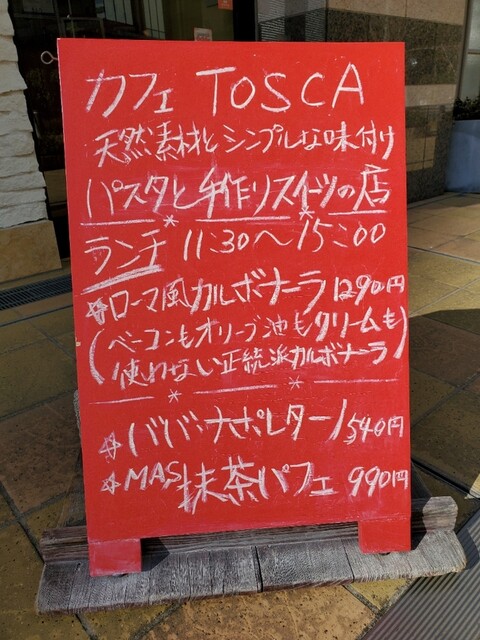 カフェ TOSCA
天然素材とシンプルな味付け
パスタと手作りスイーツの店
ランチ 11:30〜15:00
☆ローマ風カルボナーラ 1290円
(ベーコンもオリーブ油もクリームも
使わない正統派カルボナーラ)
☆ババ・ナポレターノ 540円
☆MAS抹茶パフェ 990円